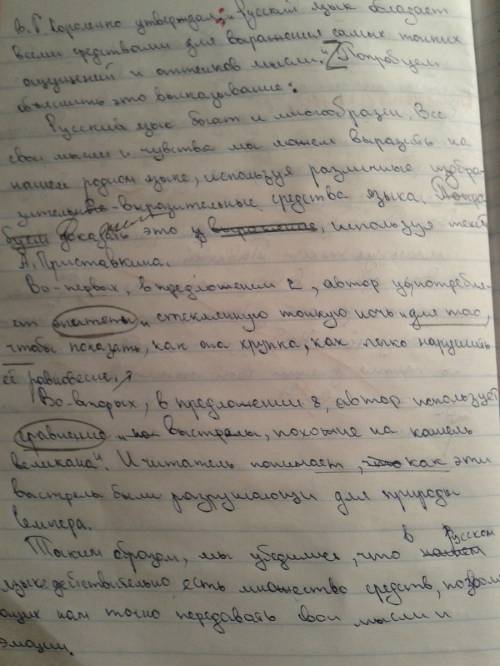 В.Г Короленко утверждал: „Русский язык обладает
всеми средствами для выражения самых тонких
ощущений и оттенков мысли." Попробуем
объяснить это высказывание:
Русский язык богат и многообразен. Все
свои мысли и чувства мы можем выразить на
нашем родном языке, используя различные изобра-
зительно-выразительные средства языка.
это, используя текст
А. Приставкина.
Во-первых, в предложении 2, автор употребля-
ет эпитеты „стеклянную тонкую ночь" для того,
чтобы показать, как она хрупка, как легко нарушить
её равновесие.
Во-вторых, в предложении 8, автор использует
сравнение „выстрелы, похожие на кашель
великана". И читатель понимает, как эти
выстрелы были разрушающи для природы
вечера.
Таким образом, мы убедились, что в русском
языке действительно есть множество средств, позволя-
ющих нам точно передавать свои мысли и
эмоции.